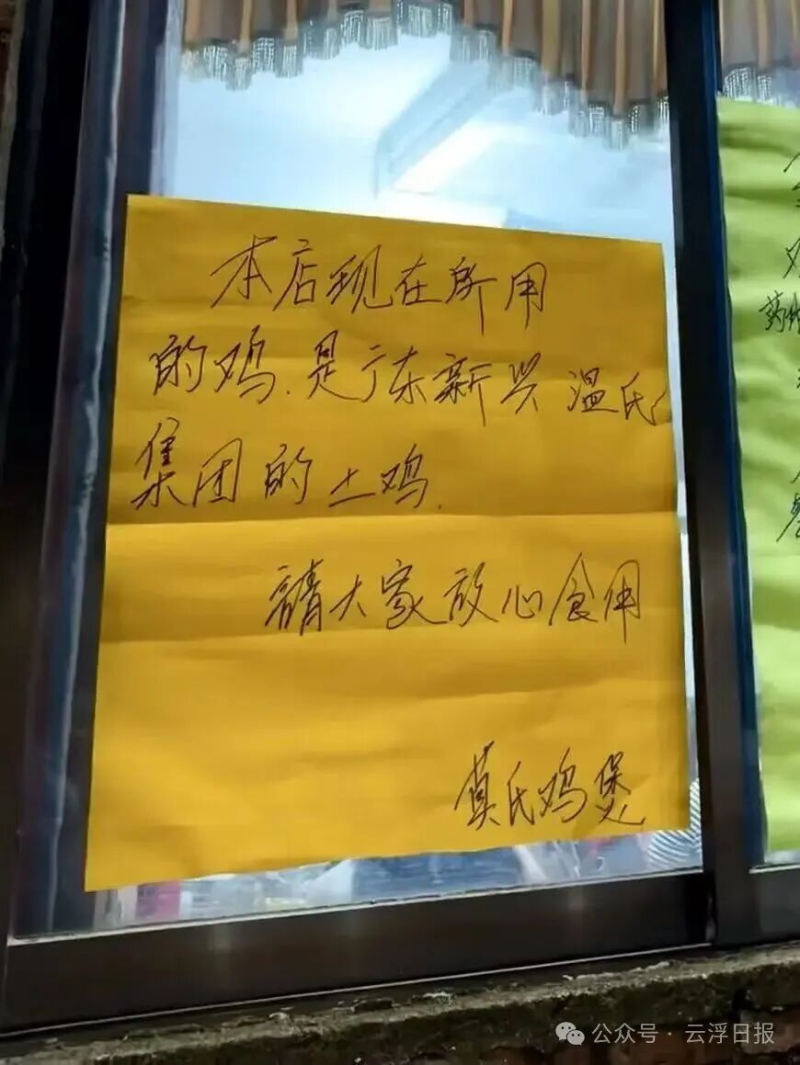 本店现在所用
的鸡.是广东新兴温氏
集团的土鸡.
請大家放心食用
莫氏鸡煲
药
公众号·云浮日报